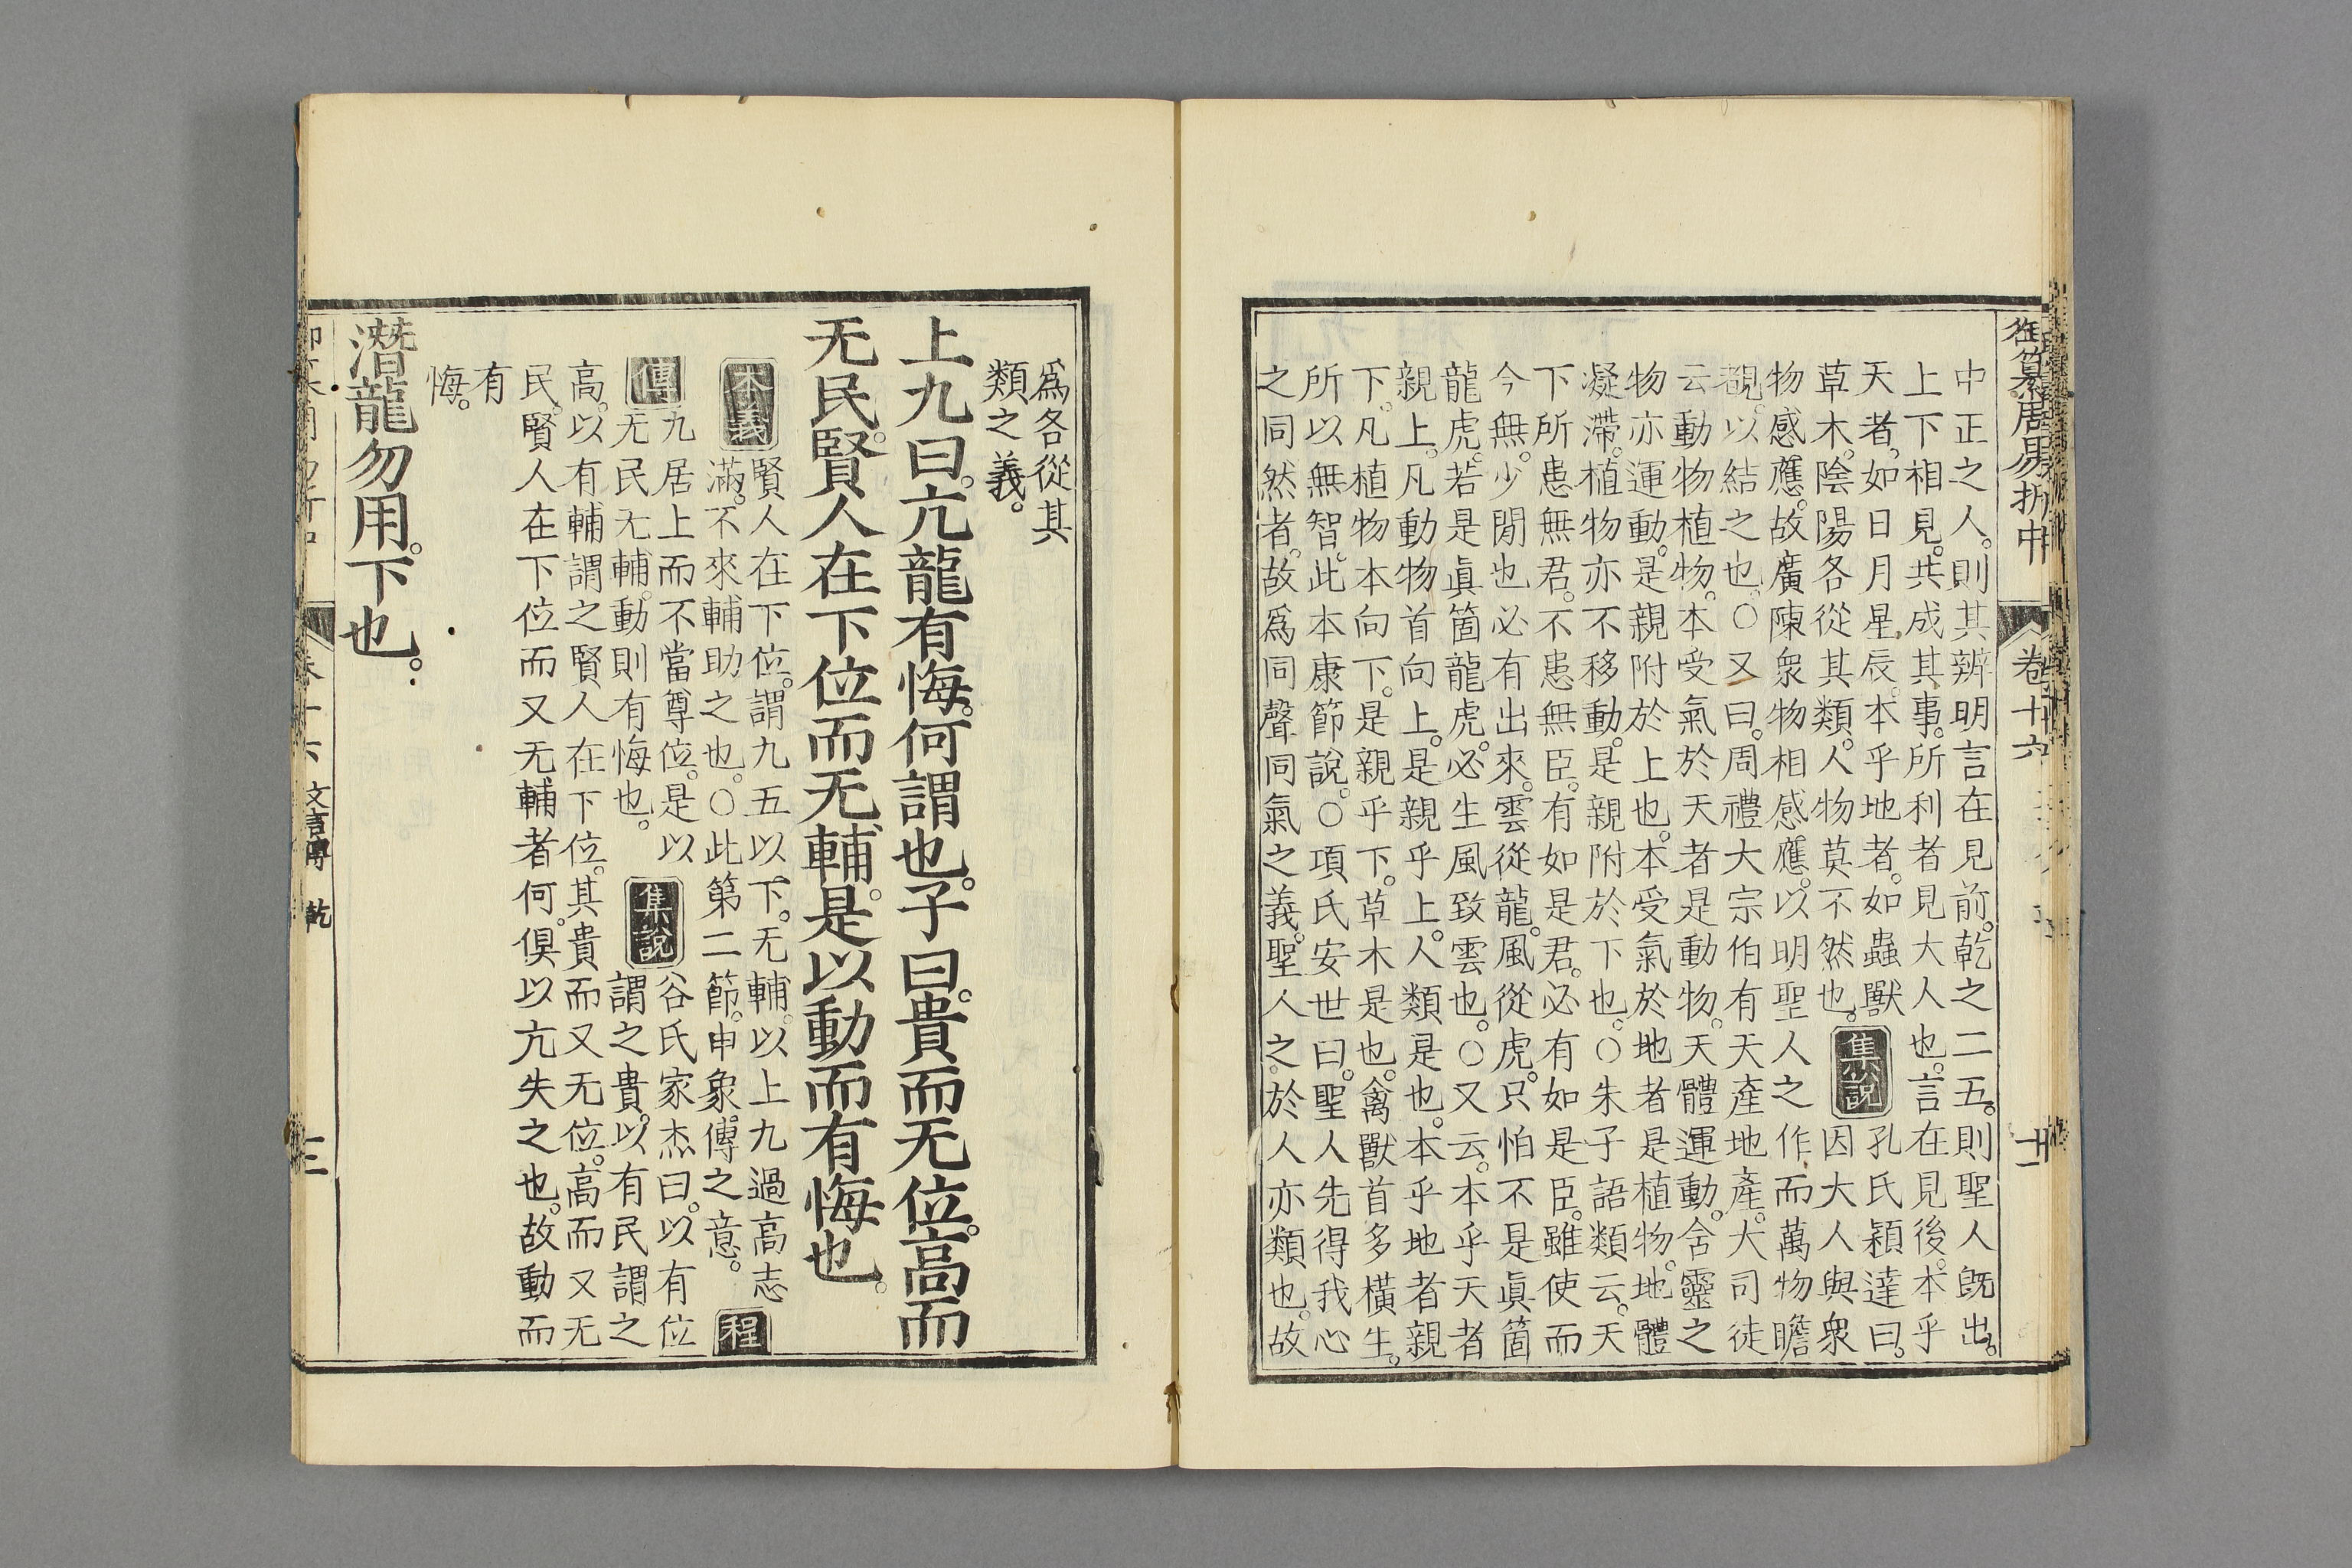 御纂周易折中 卷十六 十一
中正之人。則其辨明言在見前。乾之二五。則聖人既出。
上下相見。共成其事。所利者見大人也。言在見後。本乎
天者。如日月星辰。本乎地者。如蟲獸
草木。陰陽各從其類。人物莫不然也。
集說
孔氏穎達曰。
因大人與衆
物感應。故廣陳衆物相感應。以明聖人之作而萬物瞻
覩。以結之也。○又曰。周禮大宗伯有天產地產。大司徒
云動物植物。本受氣於天者是動物。天體運動。含靈之
物亦運動。是親附於上也。本受氣於地者是植物。地體
凝滯。植物亦不移動。是親附於下也。○朱子語類云。天
下所患無君。不患無臣。有如是君。必有如是臣。雖使而
今無。少閒也必有出來。雲從龍。風從虎。只怕不是眞箇
龍虎。若是眞箇龍虎。必生風致雲也。○又云。本乎天者
親上。凡動物首向上。是親乎上。人類是也。本乎地者親
下。凡植物本向下。是親乎下。草木是也。禽獸首多橫生。
所以無智。此本康節說。○項氏安世曰。聖人先得我心
之同然者。故爲同聲同氣之義。聖人之於人亦類也。故
爲各從其
類之義。
上九曰。亢龍有悔。何謂也。子曰。貴而无位。高而
无民。賢人在下位而无輔。是以動而有悔也。
本義
賢人在下位。謂九五以下。无輔。以上九過高志
滿。不來輔助之也。○此第二節。申象傳之意。
程
傳
九居上而不當尊位。是以
无民无輔。動則有悔也。
集說
谷氏家杰曰。以有位
謂之貴。以有民謂之
高。以有輔謂之賢人在下位。其貴而又无位。高而又无
民。賢人在下位而又无輔者何。俱以亢失之也。故動而
有
悔。
潛龍勿用。下也。
文言傳 乾